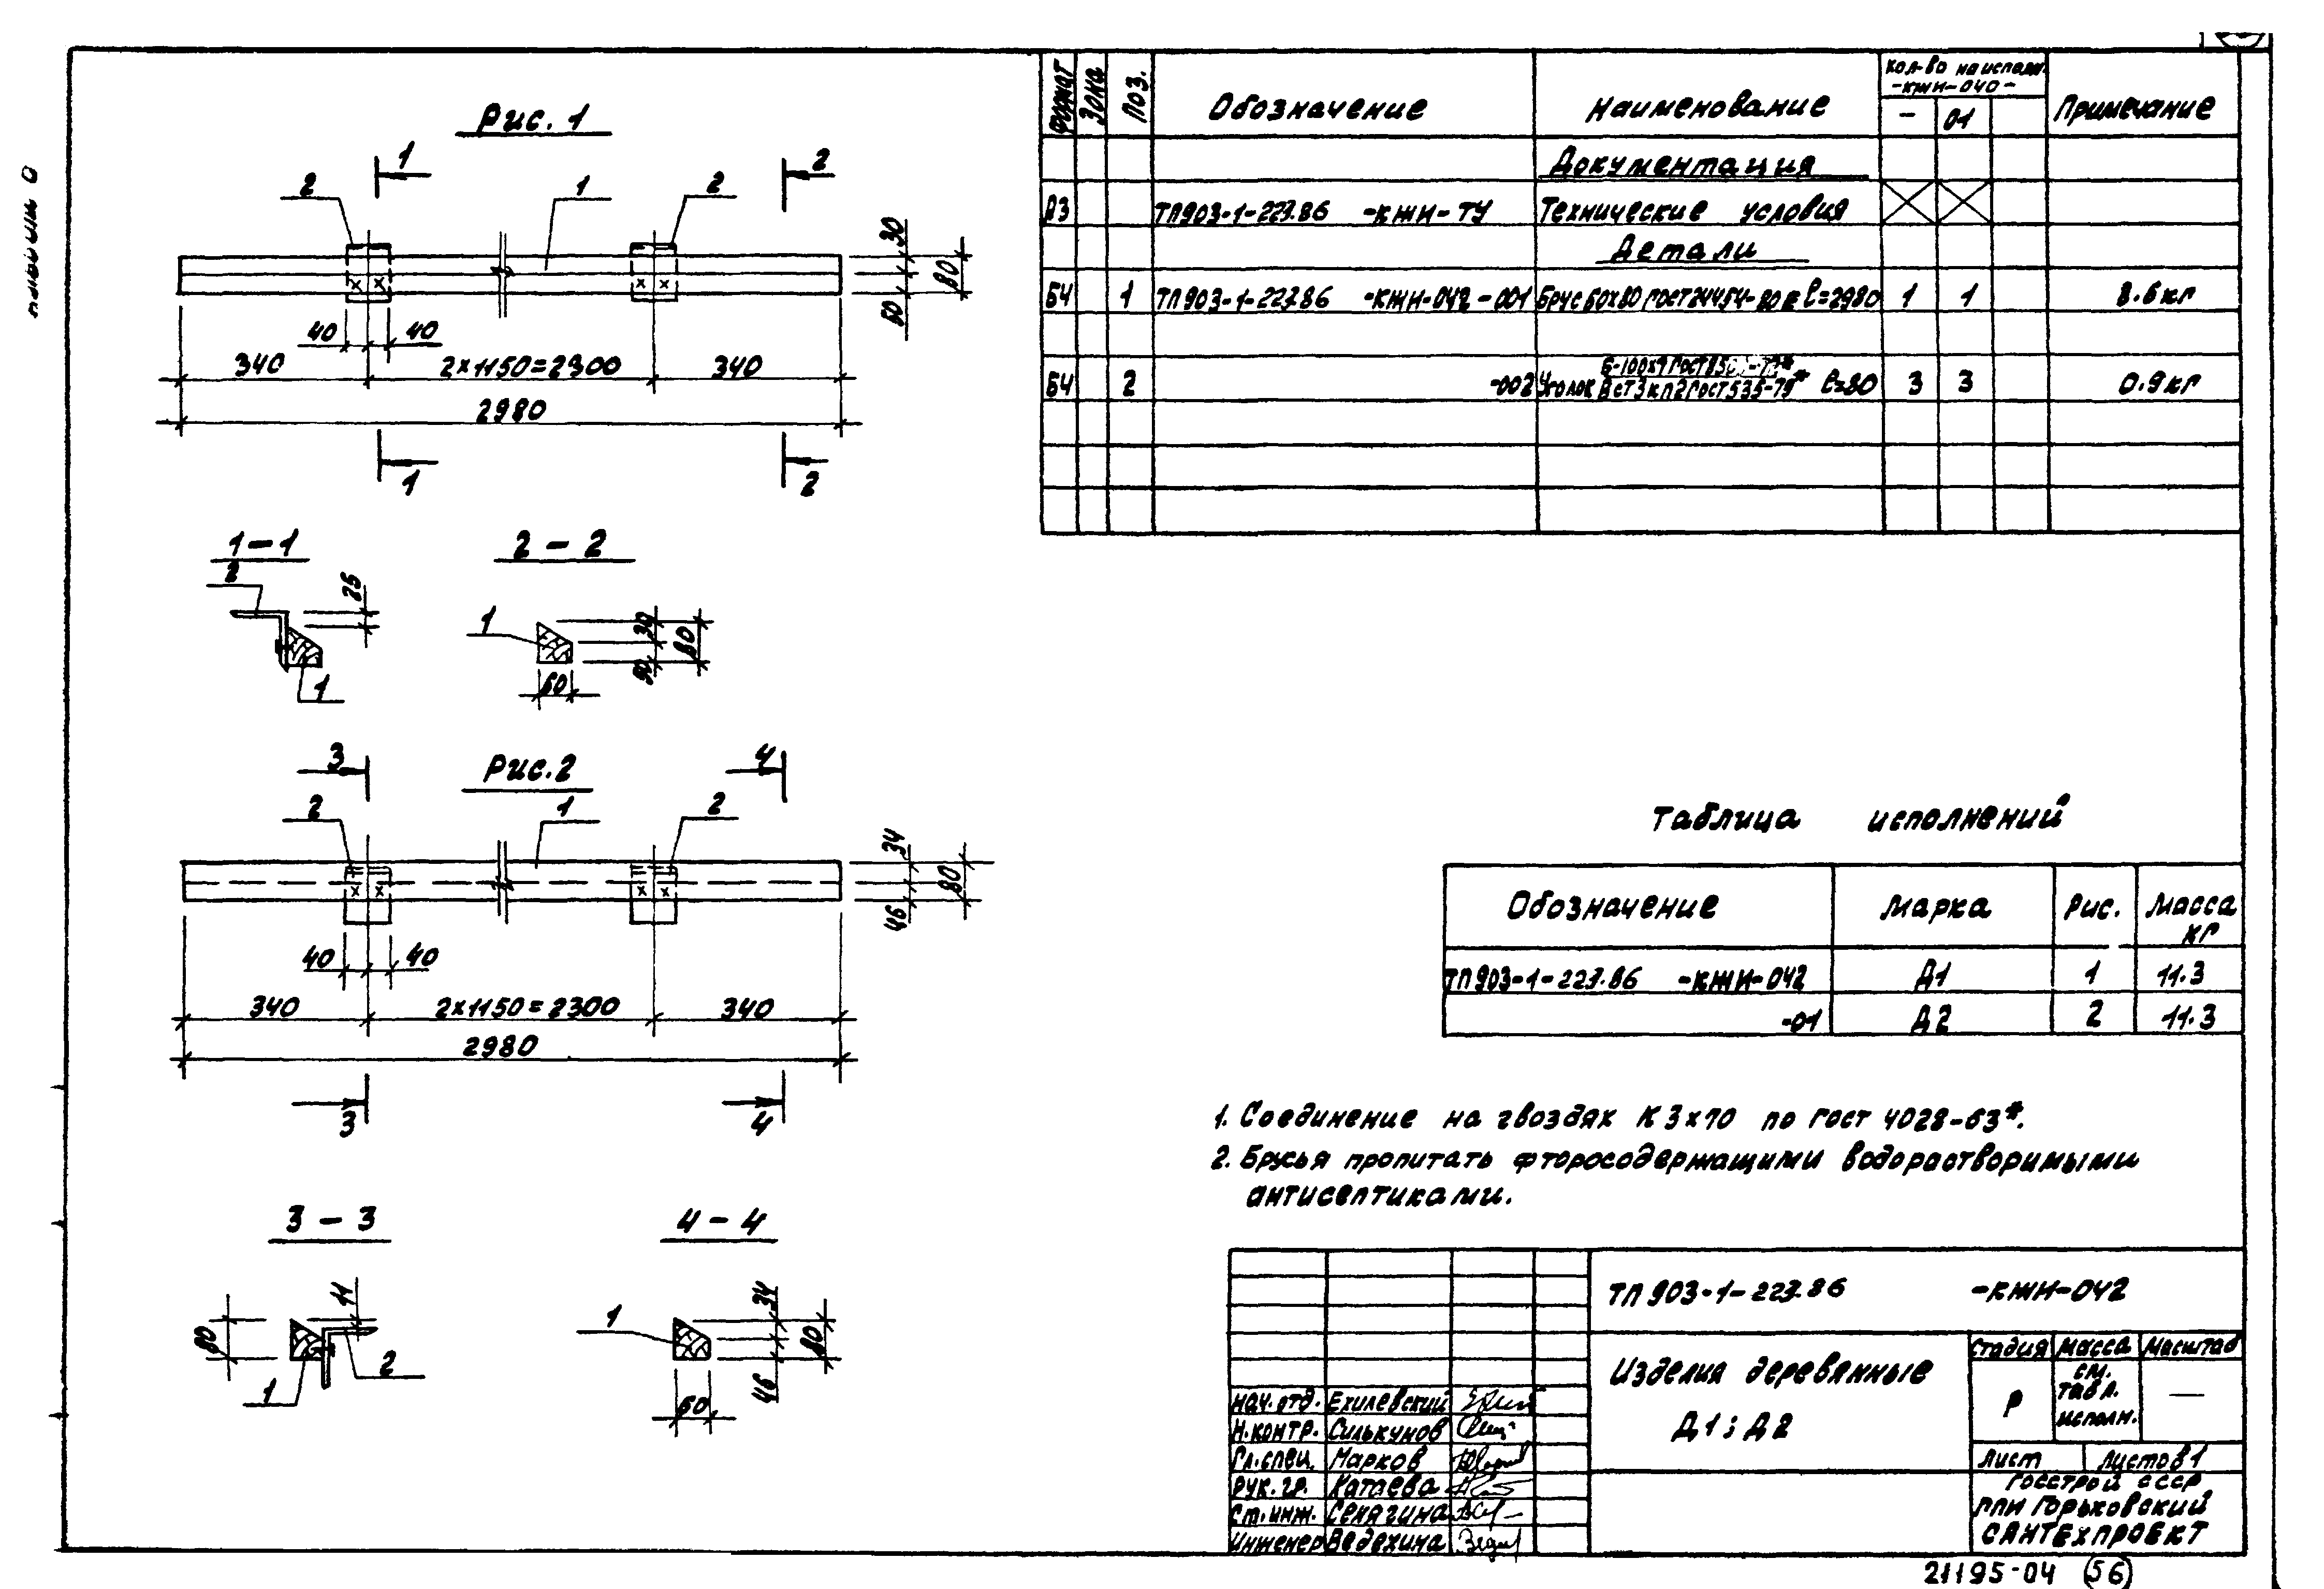 Рис. 1
1
2
2
1
2
30
80
40
40
340
2×1150=2300
340
2980
1
2
1-1
2
25
1
2-2
1
30
80
60
3
Рис.2
4
2
1
2
34
80
46
40
40
340
2×1150=2300
340
2980
3
4
3-3
80
11
1
2
4-4
1
34
80
46
60
Формат
Зона
Поз.
Обозначение
Наименование
Кол-во на исполн.
-КЖИ-040-
-
01
Примечание
Документация
А3 ТП903-1-227.86 -КЖИ-ТУ Технические условия
Детали
БЧ 1 ТП903-1-227.86 -КЖИ-042-001 Брус 60×80 ГОСТ 24454-80 E ℓ=2980 1 1 8.6 кг
БЧ 2 -002 Уголок ВСт3кп2 ГОСТ 535-79* ℓ=80 3 3 0.9 кг
Таблица исполнений
Обозначение Марка Рис. Масса кг
ТП903-1-227.86 -КЖИ-042 Д1 1 11.3
-01 Д2 2 11.3
1. Соединение на гвоздях К 3×70 по ГОСТ 4028-63*.
2. Брусья пропитать фторосодержащими водорастворимыми
антисептиками.
ТП 903-1-227.86 -КЖИ-042
Изделия деревянные
Д1; Д2
Стадия Масса Масштаб
Р
см.
табл.
исполн.
—
Лист Листов 1
Госстрой СССР
ППИ Горьковский
САНТЕХПРОЕКТ
Нач. отд. Ехилевский
Н.контр. Силькунов
Гл.спец. Марков
Рук. гр. Катаева
Ст.инж. Секягина
Инженер Ведехина
21195-04 56